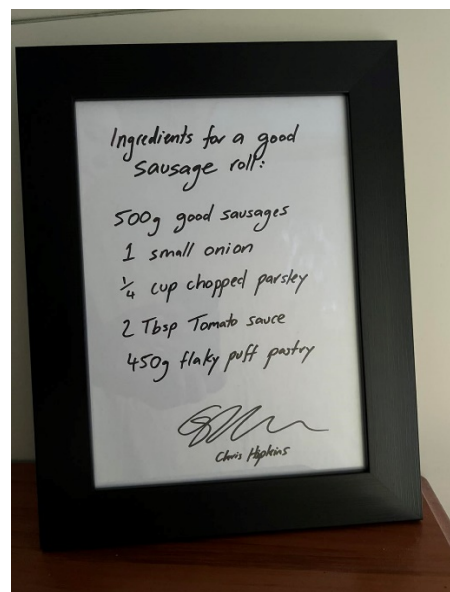 Ingredients for a good
sausage roll:
500g good sausages
1 small onion
¼ cup chopped parsley
2 Tbsp Tomato sauce
450g flaky puff pastry
Chris Hipkins